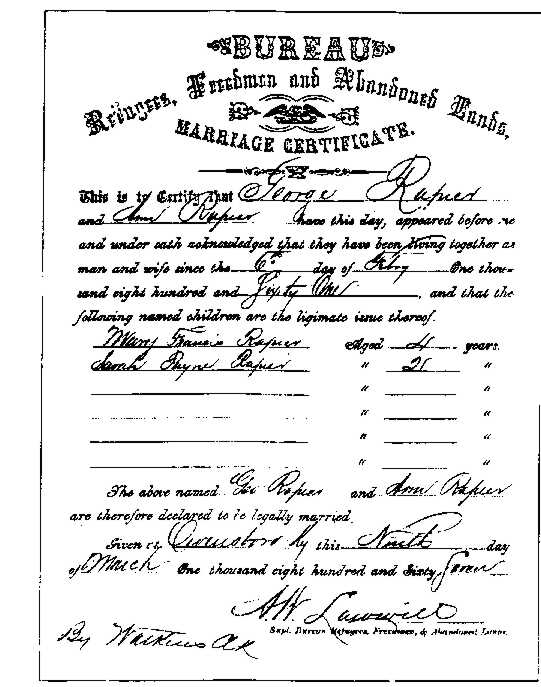 BUREAU
Refugees, Freedmen and Abandoned Lands,
MARRIAGE CERTIFICATE.
This is to Certify that George Rapier
and Ann Rapier have this day, appeared before me
and under oath acknowledged that they have been living together as
man and wife since the 6th day of Feby One thou-
sand eight hundred and Sixty One, and that the
following named children are the ligimate issue thereof.
Mary Francis Rapier Aged 4 years.
Sarah Payne Rapier " "
" "
" "
" "
" "
The above named Geo Rapier and Ann Rapier
are therefore declared to be legally married.
Given at Owensboro Ky this Ninth day
of March One thousand eight hundred and Sixty Seven
A.W. Lawwill
Supt. Bureau Refugees, Freedmen, & Abandoned Lands.
By Watkins